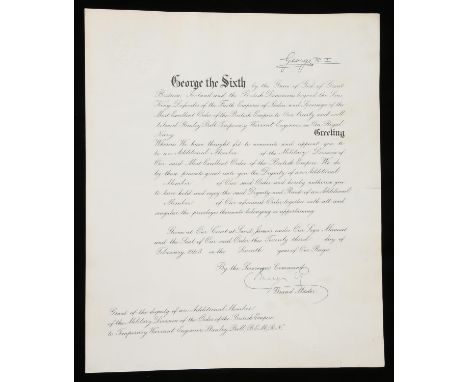 George R I
George the Sixth by the Grace of God of Great
Britain, Ireland and the British Dominions beyond the Seas
King, Defender of the Faith, Emperor of India and Sovereign of the
Most Excellent Order of the British Empire to Our trusty and well
beloved Stanley Bell Temporary Warrant Engineer in Our Royal
Navy
Greeting
Whereas We have thought fit to nominate and appoint you to
be an Additional Member of the Military Division of
Our said Most Excellent Order of the British Empire We do
by these presents grant unto you the Dignity of an Additional
Member of Our said Order and hereby authorise you
to have hold and enjoy the said Dignity and Rank of an Additional
Member of Our aforesaid Order together with all and
singular the privileges thereunto belonging or appertaining
Given at Our Court at Saint James's under Our Sign Manual
and the Seal of Our said Order this Twenty third day of
February 1943 in the Seventh year of Our Reign
By the Sovereign's Command
Grand Master
Grant of the dignity of an Additional Member
of the Military Division of the Order of the British Empire
to Temporary Warrant Engineer Stanley Bell, B.E.M., R.N.